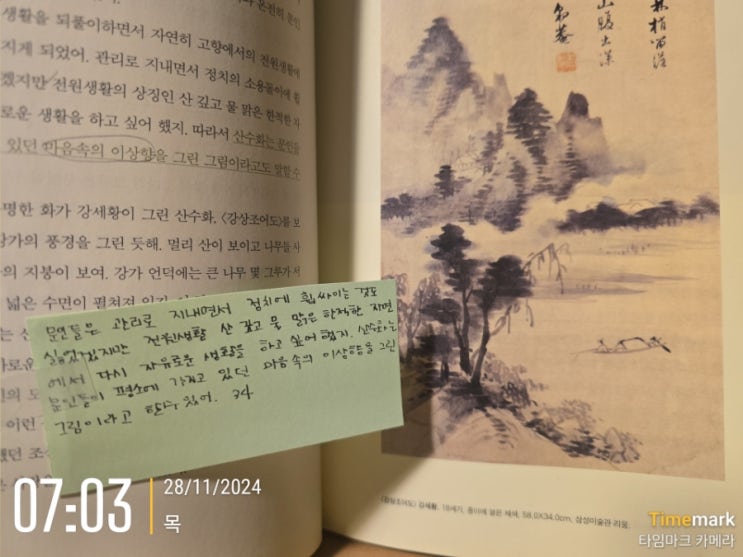 생활을 되풀이하면서 자연히 고향에서의 전원생활에
지게 되었어. 관리로 지내면서 정치의 소용돌이에 휩
겠지만 전원생활의 상징인 산 깊고 물 맑은 한적한 자
로운 생활을 하고 싶어 했지. 따라서 산수화는 문인들
있던 마음속의 이상향을 그린 그림이라고도 말할 수
명한 화가 강세황이 그린 산수화, 〈강상조어도〉를 보
강가의 풍경을 그린 듯해. 멀리 산이 보이고 나무들 사
의 지붕이 보여. 강가 언덕에는 큰 나무 몇 그루가 서
넓은 수면이 펼쳐져
문인들은 관리로 지내면서 정치에 휩싸이는 것도
싫었겠지만 전원생활 산 깊고 물 맑은 한적한 자연
에서 다시 자유로운 생활을 하고 싶어 했지. 산수화는
문인들이 평소에 가지고 있던 마음속의 이상향을 그린
그림이라고 할수 있어. 34
이런
했던
〈강상조어도〉 강세황, 18세기, 종이에 옅은 채색, 58.0X34.0cm, 삼성미술관 리움.
07:03
28/11/2024
목
Timemark
타임마크 카메라